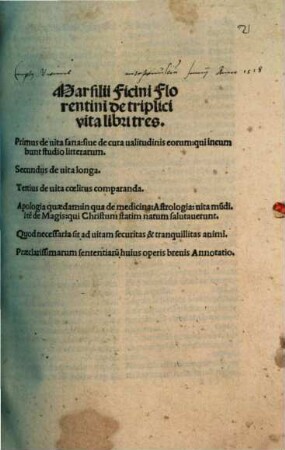 2
1518
Marsilii Ficini Flo
rentini de triplici
vita libri tres.
Primus de uita sana: siue de cura ualitudinis eorum: qui incum
bunt studio litterarum.
Secundus de uita longa.
Tertius de uita cœlitus comparanda.
Apologia quædam in qua de medicina: Astrologia: uita mūdi:
itē de Magis: qui Christum statim natum salutauerunt.
Quod necessaria sit ad uitam securitas & tranquillitas animi.
Præclarissimarum sententiarū huius operis breuis Annotatio.